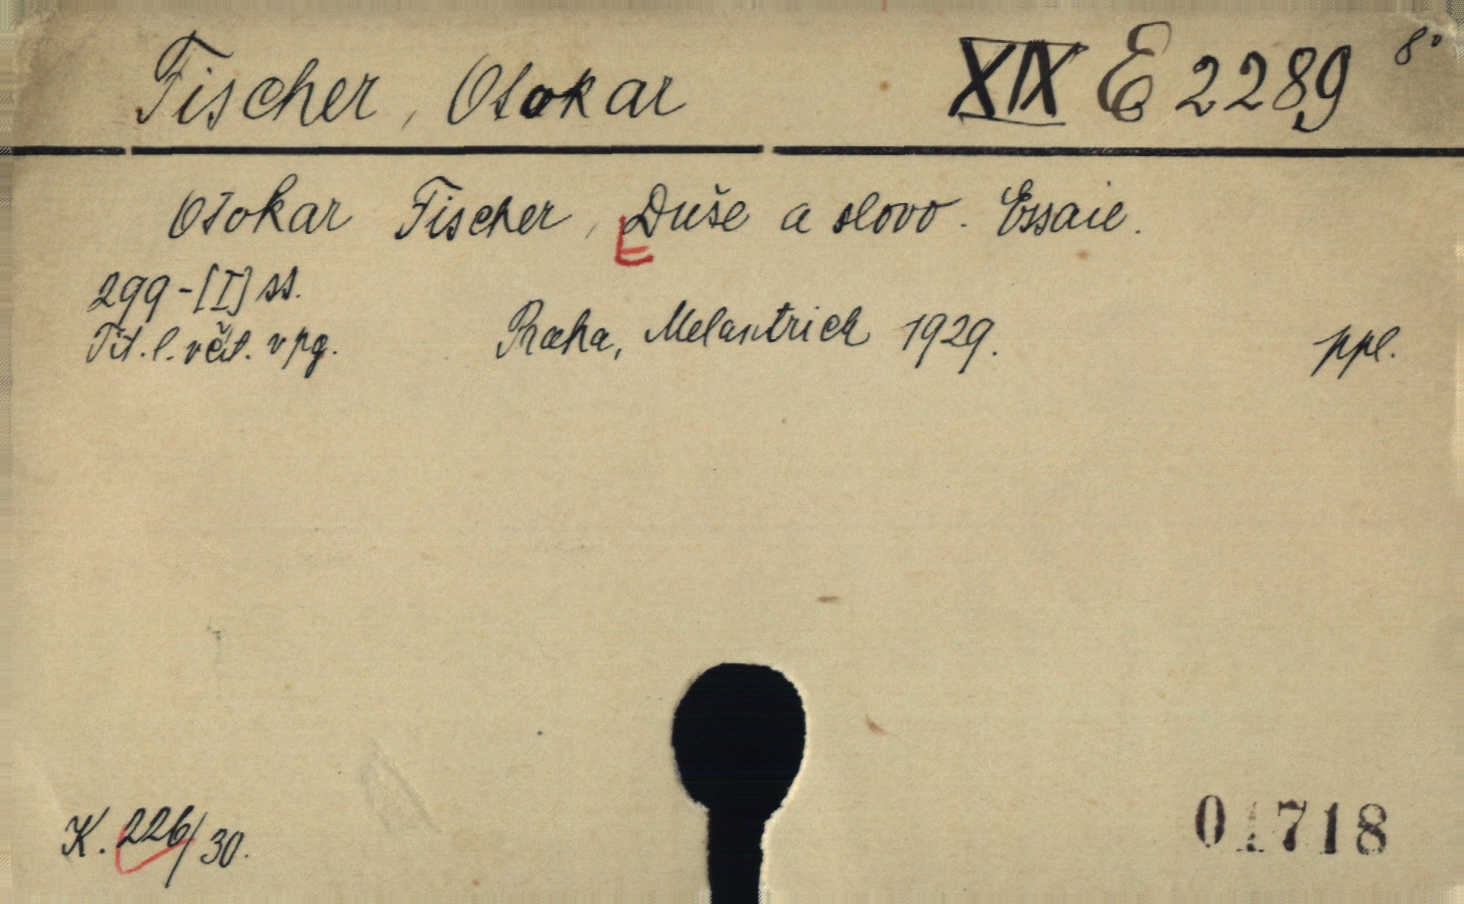 Fischer, Otokar XIX E 2289 8°
Otokar Fischer, Duše a slovo. Essaie.
299-[I] ss.
Tit. l. včít. v pg. Praha, Melantrich 1929. ppl.
K. 226/30. 01718